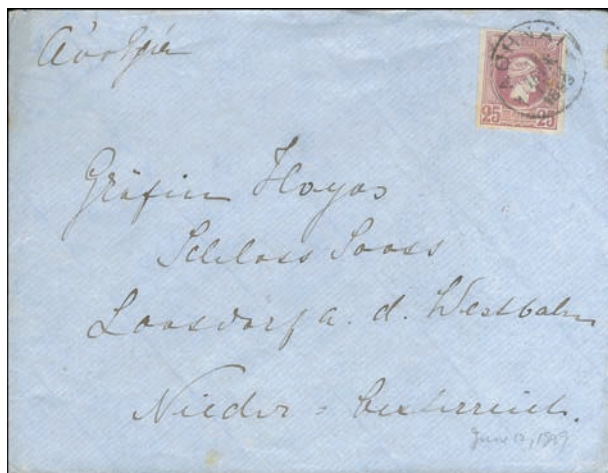 Αυστρία
ΑΘΗΝΑΙ
25 25
Gräfin Hoyos
Schloss Sooss
Loosdorf a. d. Westbahn
Nieder-Oesterreich.
June 12, 1899